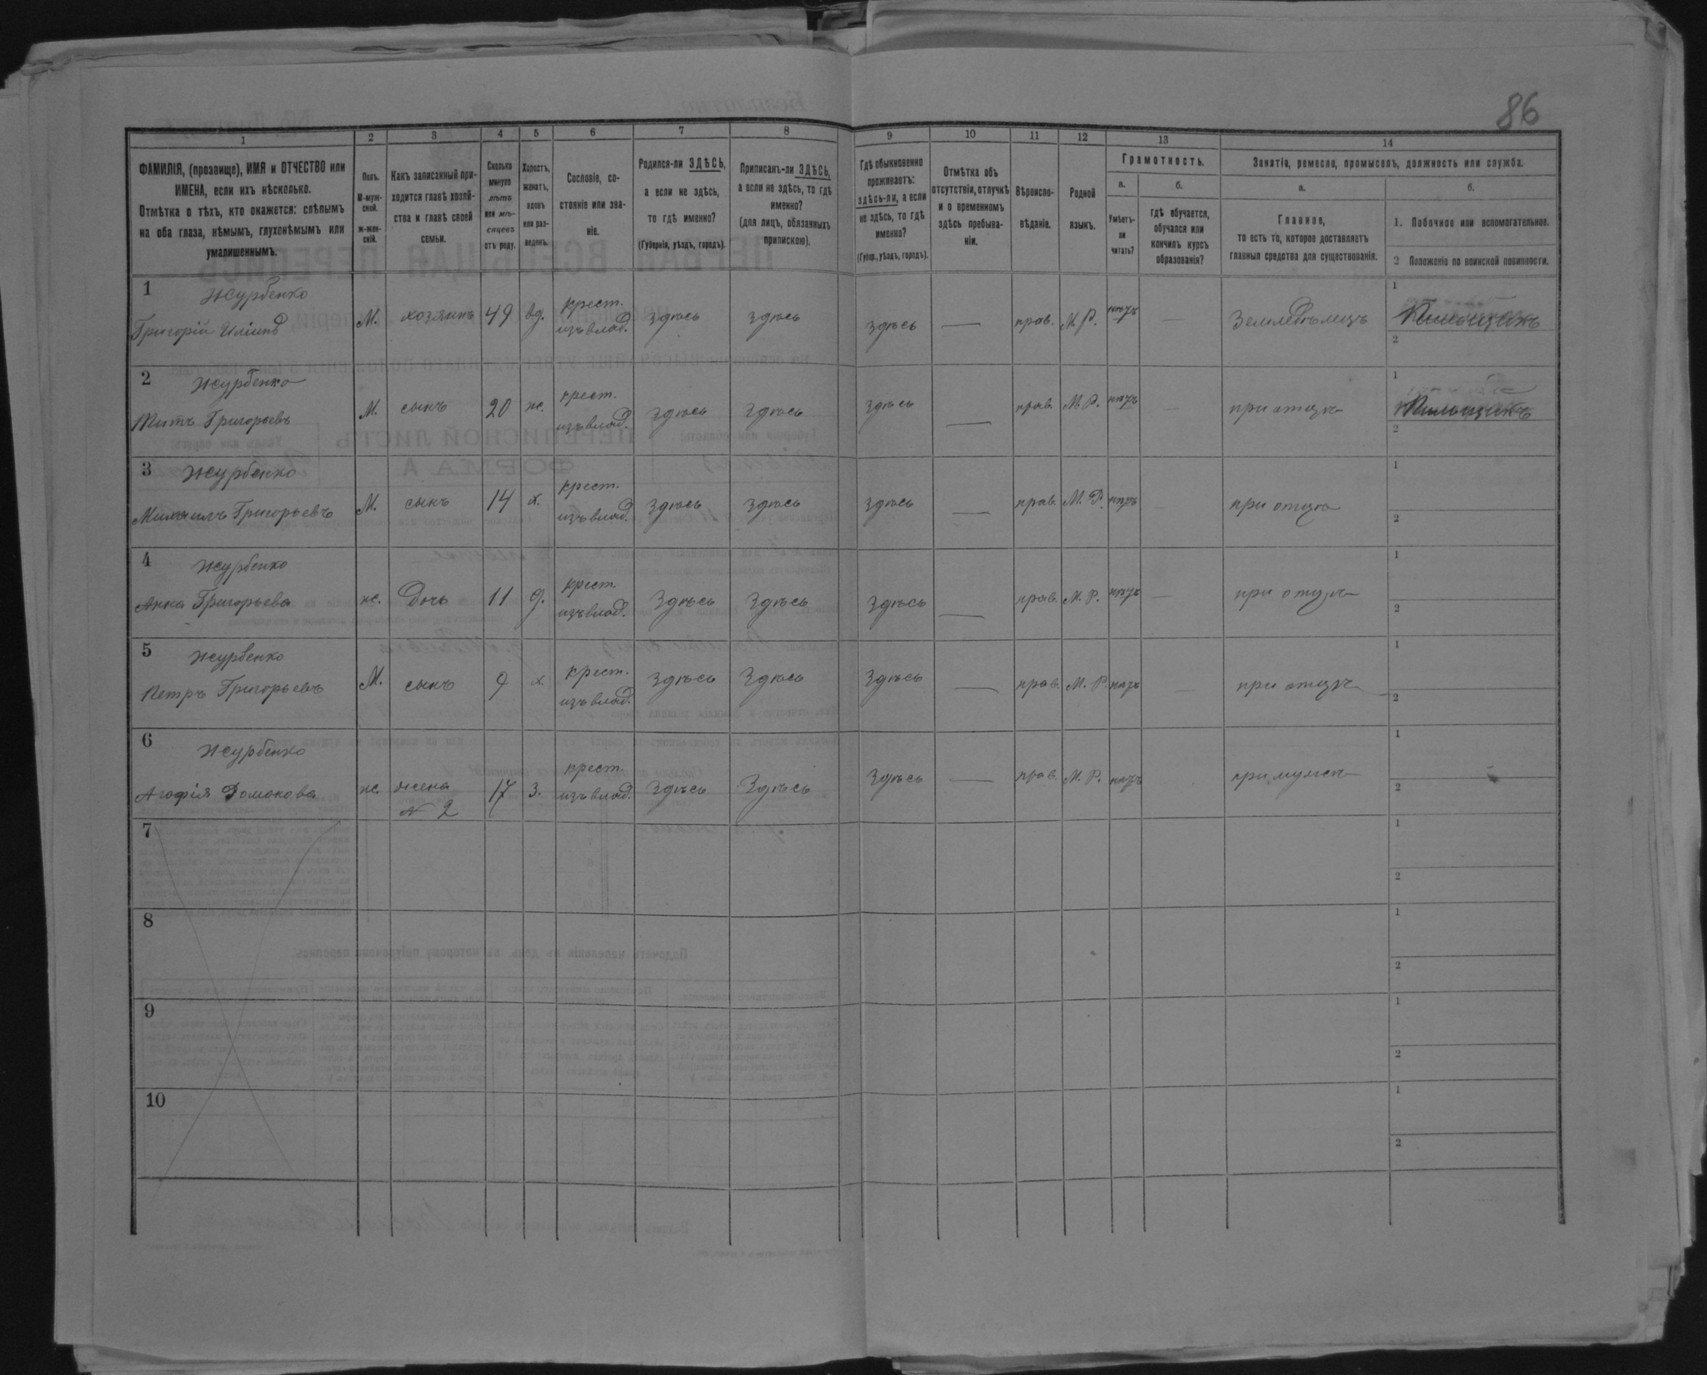 86
1 2 3 4 5 6 7 8 9 10 11 12 13 14
ФАМИЛІЯ, (прозвище), ИМЯ и ОТЧЕСТВО или
ИМЕНА, если ихъ нѣсколько.
Отмѣтка о тѣхъ, кто окажется: слѣпымъ
на оба глаза, нѣмымъ, глухонѣмымъ или
умалишеннымъ.
Полъ.
М-муж-
ской.
ж-жен-
скій.
Какъ записанный при-
ходится главѣ хозяй-
ства и главѣ своей
семьи.
Сколько
минуло
лѣтъ
или мѣ-
сяцевъ
отъ роду.
Холостъ,
женатъ,
вдовъ
или раз-
веденъ.
Сословіе, со-
стояніе или зва-
ніе.
Родился-ли ЗДѢСЬ,
а если не здѣсь,
то гдѣ именно?
(Губернія, уѣздъ, городъ).
Приписанъ-ли ЗДѢСЬ,
а если не здѣсь, то гдѣ
именно?
(для лицъ, обязанныхъ
припискою).
Гдѣ обыкновенно
проживаетъ:
здѣсь-ли, а если
не здѣсь, то гдѣ
именно?
(Губер., уѣздъ, городъ).
Отмѣтка объ
отсутствіи, отлучкѣ
и о временномъ
здѣсь пребыва-
ніи.
Вѣроиспо-
вѣданіе.
Родной
языкъ.
Грамотность.
а.
Умѣетъ-
ли
читать?
б.
гдѣ обучается,
обучался или
кончилъ курсъ
образованія?
Занятіе, ремесло, промыселъ, должность или служба.
а.
Главное,
то есть то, которое доставляетъ
главныя средства для существованія.
б.
1. Побочное или вспомогательное.
2 Положеніе по воинской повинности.
1 Журбенко
Григорій Иліинъ М. хозяинъ 49 вд. крест. изъ влад. здѣсь здѣсь здѣсь — прав. М.Р. — Земледѣлецъ 1
2
2 Журбенко
Титъ Григорьевъ М. сынъ 20 ж. крест. изъ влад. здѣсь здѣсь здѣсь — прав. М.Р. — при отцѣ 1
2
3 Журбенко
Михаилъ Григорьевъ М. сынъ 14 х. крест. изъ влад. здѣсь здѣсь здѣсь — прав. М.Р. при отцѣ 1
2
4 Журбенко
Анна Григорьева ж. дочь 11 д. крест. изъ влад. здѣсь здѣсь здѣсь — прав. М.Р. — при отцѣ 1
2
5 Журбенко
Петръ Григорьевъ М. сынъ 9 х. крест. изъ влад. здѣсь здѣсь здѣсь — прав. М.Р. — при отцѣ 1
2
6 Журбенко
Агафія Домакова ж. жена № 2 17 з. крест. изъ влад. здѣсь здѣсь здѣсь — прав. М.Р. при мужѣ 1
2
7 1
2
8 1
2
9 1
2
10 1
2